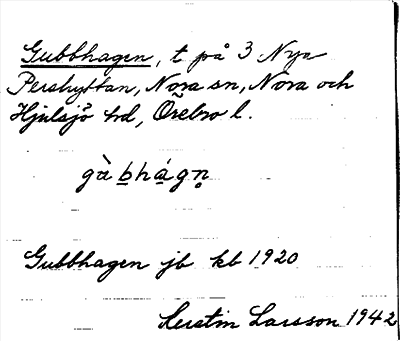 Gubbhagen, t på 3 Nya
Pershyttan, Nora sn, Nora och
Hjulsjö hd, Örebro l.
gàb̲há̲gn̥
Gubbhagen jb kb 1920
Kerstin Larsson 1942